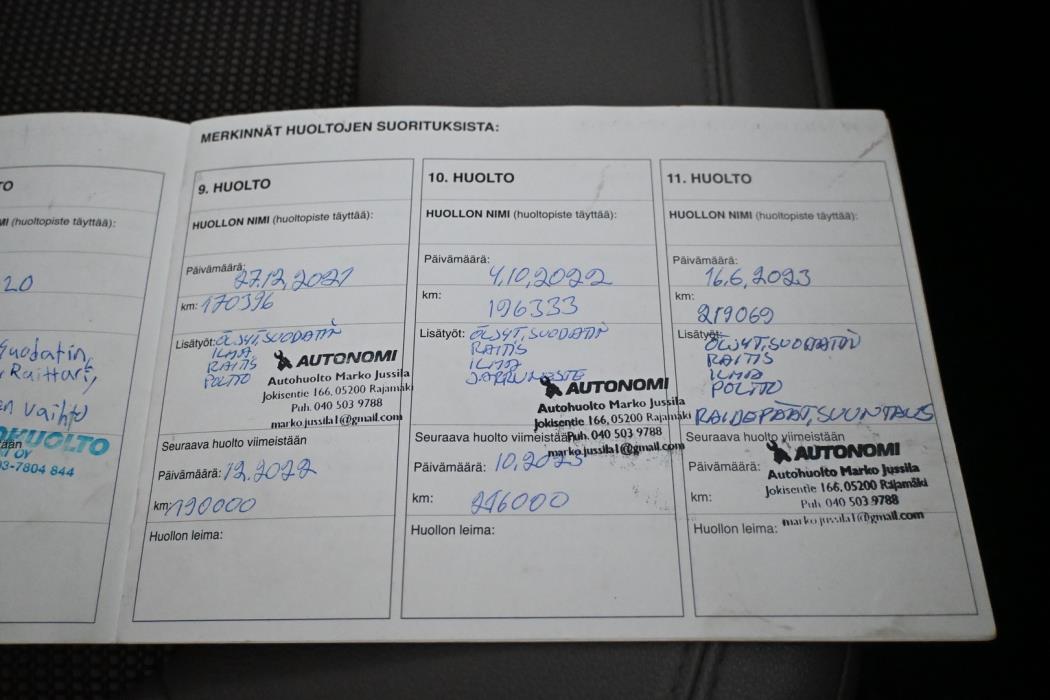 MERKINNÄT HUOLTOJEN SUORITUKSISTA:
TO
MI (huoltopiste täyttää):
20
Suodatin,
Raittari,
en vaihto
OHUOLTO
tään
OY
03-7804 844
9. HUOLTO
HUOLLON NIMI (huoltopiste täyttää):
Päivämäärä: 27.12,2021
km: 170396
Lisätyöt: ÖLJYT, SUODATIN
ILMA,
RAITIS
POLTTO
AUTONOMI
Autohuolto Marko Jussila
Jokisentie 166, 05200 Rajamäki
Puh. 040 503 9788
marko.jussila1@gmail.com
Seuraava huolto viimeistään
Päivämäärä: 12.2022
km: 190000
Huollon leima:
10. HUOLTO
HUOLLON NIMI (huoltopiste täyttää):
Päivämäärä:
4,10,2022
km:
196333
Lisätyöt: ÖLJYT, SUODATIN
RAITIS
ILMA
JARRUNESTE
AUTONOMI
Autohuolto Marko Jussila
Jokisentie 166, 05200 Rajamäki
Seuraava huolto viimeistään
Puh. 040 503 9788
marko.jussila1@gmail.com
Päivämäärä: 10.2023
km: 216000
Huollon leima:
11. HUOLTO
HUOLLON NIMI (huoltopiste täyttää):
Päivämäärä:
16.6,2023
km:
219069
Lisätyöt:
ÖLJYT, SUODATIN
RAITIS
ILMA
POLTTO
RAIDEPÄÄT, SUUNTAUS
Seuraava huolto viimeistään
AUTONOMI
Päivämäärä:
Autohuolto Marko Jussila
Jokisentie 166, 05200 Rajamäki
km:
Puh. 040 503 9788
marko.jussila1@gmail.com
Huollon leima: